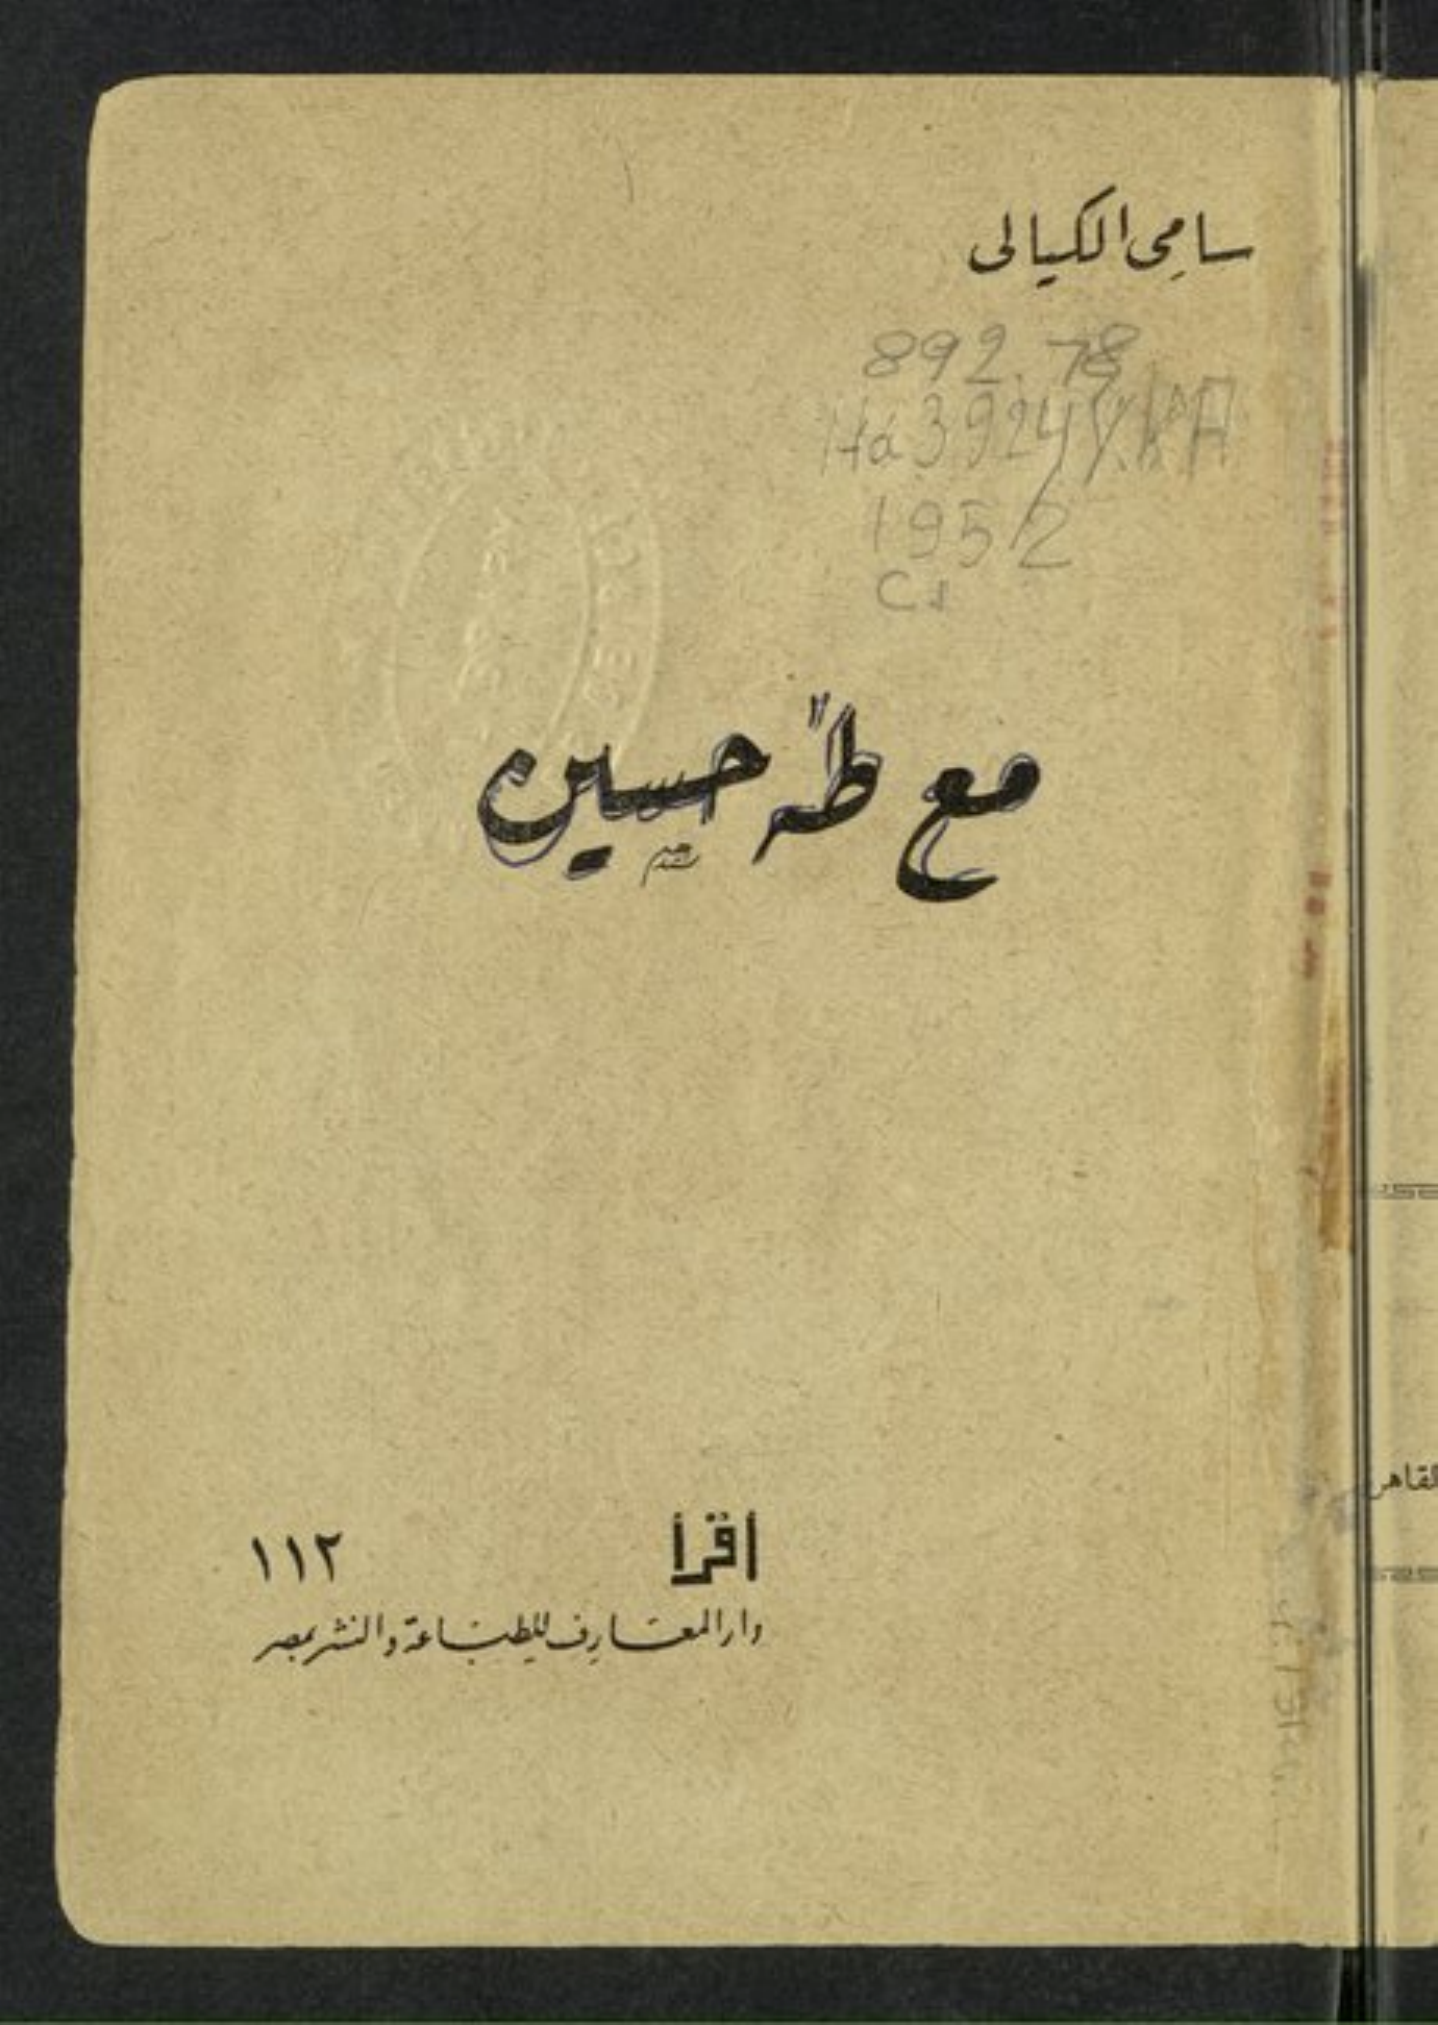 سامى الكيالى
892.78
1952
C1
مع طه حسين
اقرأ ١١٢
دار المعارف للطباعة والنشر بمصر